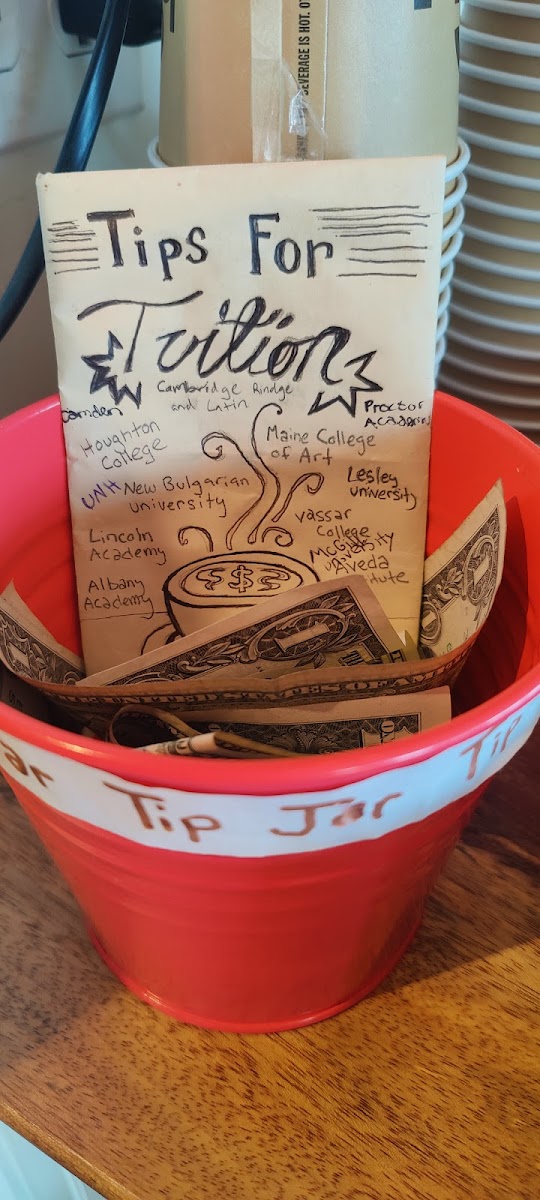 BEVERAGE IS HOT.
Tips For
Tuition
Cambridge Rindge
and Latin
Camden
Proctor
Academy
Houghton
College
Maine College
of Art
UNH
New Bulgarian
University
Lesley
University
Vassar
College
Lincoln
Academy
McGill
University
Aveda
Albany
Academy
THE UNITED STATES OF AM
Tip Jar
Tip